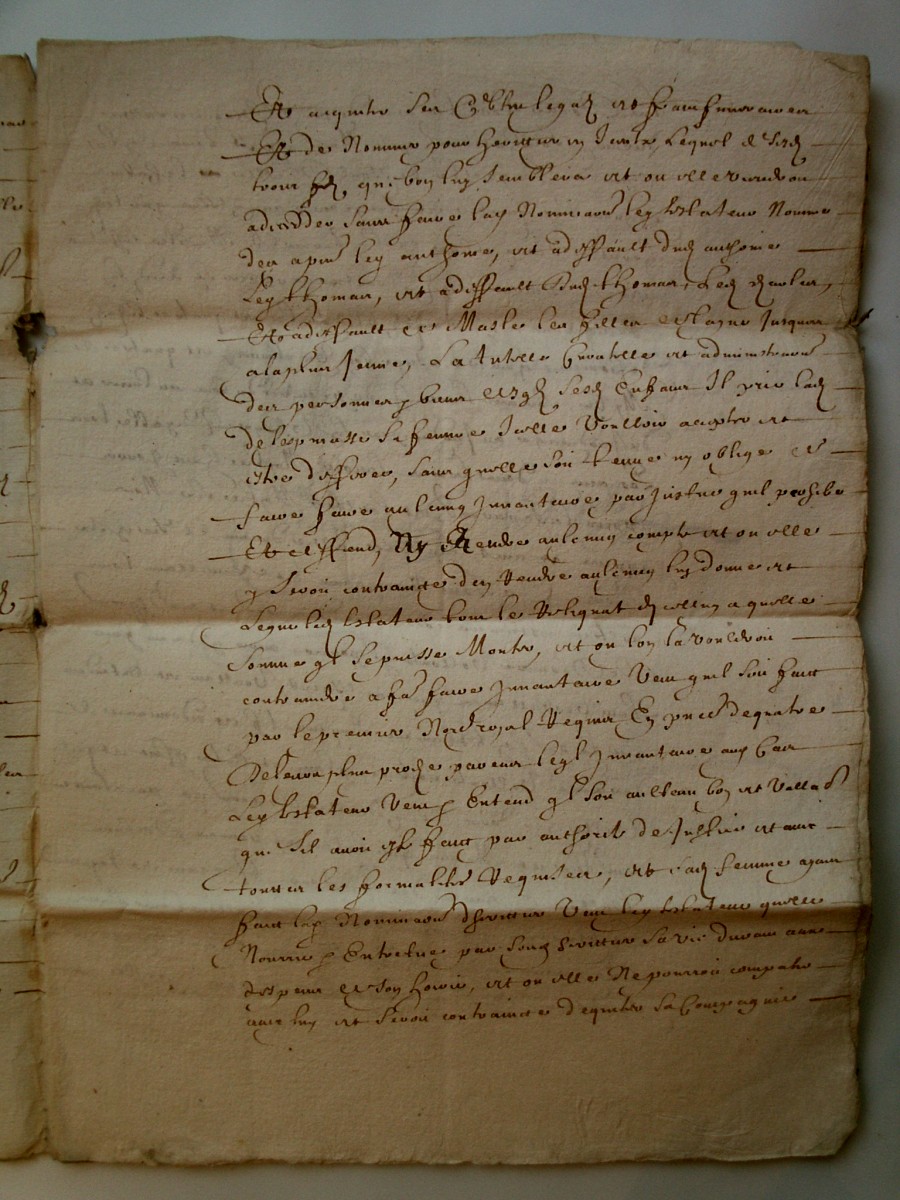 Et acquiter ses debtes legaz et frais funeraires
Et de Nommer pour heritier un Iceulx Lequel de sesd
tour filz que bon luy semblera et ou elle viendroit
a decedder sans faire lad Nomination led testateur Nomme
des a pnt led anthoine, et a deffault dud anthoine
Led thomas, et a deffault dud thomas Led Charles,
Et a deffault de Masles les filles de laynee Jusques
a la plus Jeune, La tutelle Cruatelle et administration
des personnes & biens desd sesd Enfans Il prie lad
de lespinasse sa femme Icelle Voulloir accepter et
estre deschargee, sans quelle soit tenue ny obligee de
faire faire aulcung Inventaire par Justice quil prohibe
Et deffend, Ny Rendre aulcung compte et ou elle
seroit contraincte den Rendre aulcung luy donne et
Legue led testateur tout le Reliquat dicelluy a quelle
somme quil se puisse Monter, et ou lon la vouldroit
contraindre a fe faire Inventaire Veut quil soit faict
par le premier Nore royal Requis En pnce de quatre
De leurs plus proches parens lequel Inventaire aud Cas
Led testateur Veut & Entend quil soit aultant bon et Vallable
que sil avoit esté faict par authorité de Justice et avec
touttes les formalités Requises, et sad femme ayant
faict lad Nomination dheritier Veut led testateur quelle
Nourrie & Entretenue par sond heritier sa vie durant aux
despens de son hoirie, et ou elle Ne pourroit compatir
avec luy et seroit contraincte de quitter sa Compagnie